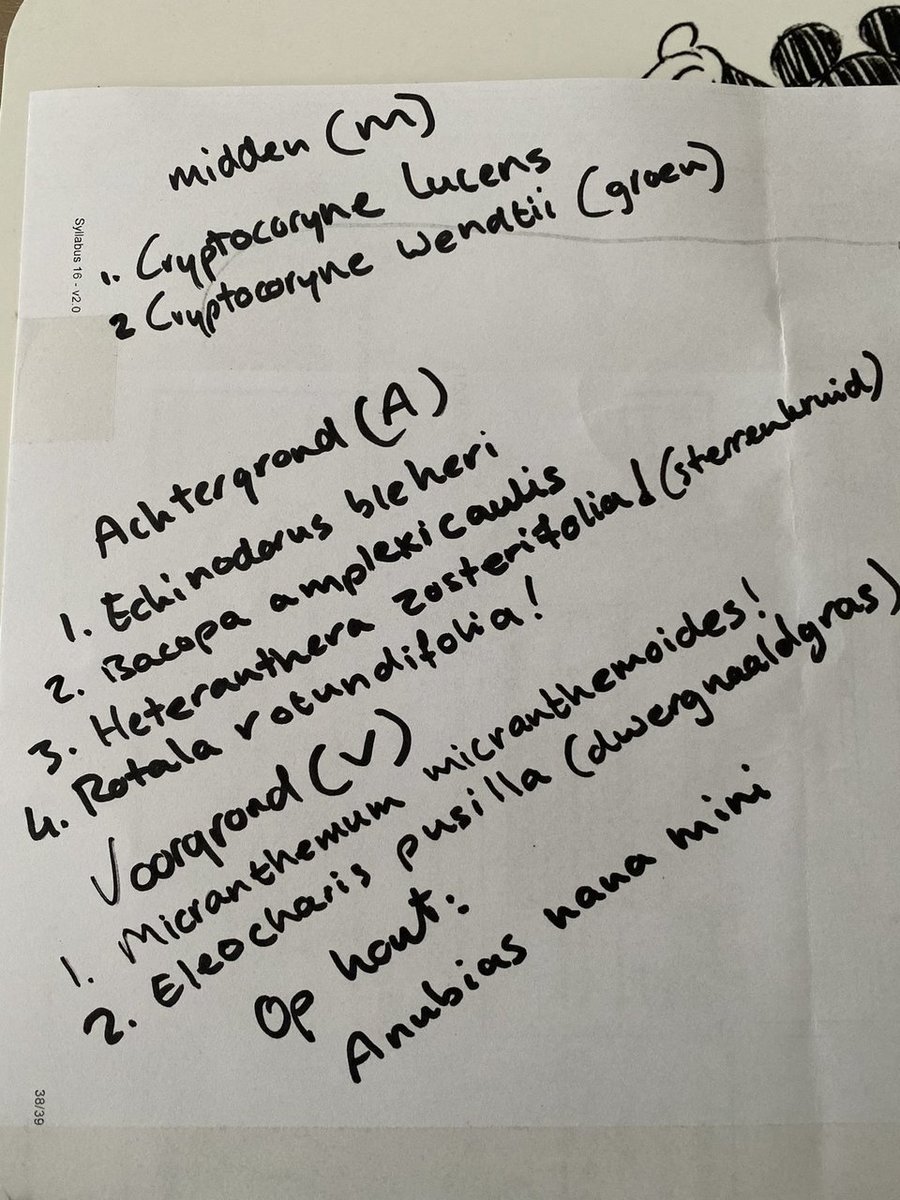 midden (m)
1. Cryptocoryne lucens
2 Cryptocoryne wendtii (groen)
Achtergrond (A)
1. Echinodorus bleheri
2. Bacopa amplexicaulis
3. Heteranthera zosterifolia! (sterrenkruid)
4. Rotala rotundifolia!
Voorgrond (V)
1. Micranthemum micranthemoides!
2. Eleocharis pusilla (dwergnaaldgras)
Op hout:
Anubias nana mini
Syllabus 16 - v2.0
38/39